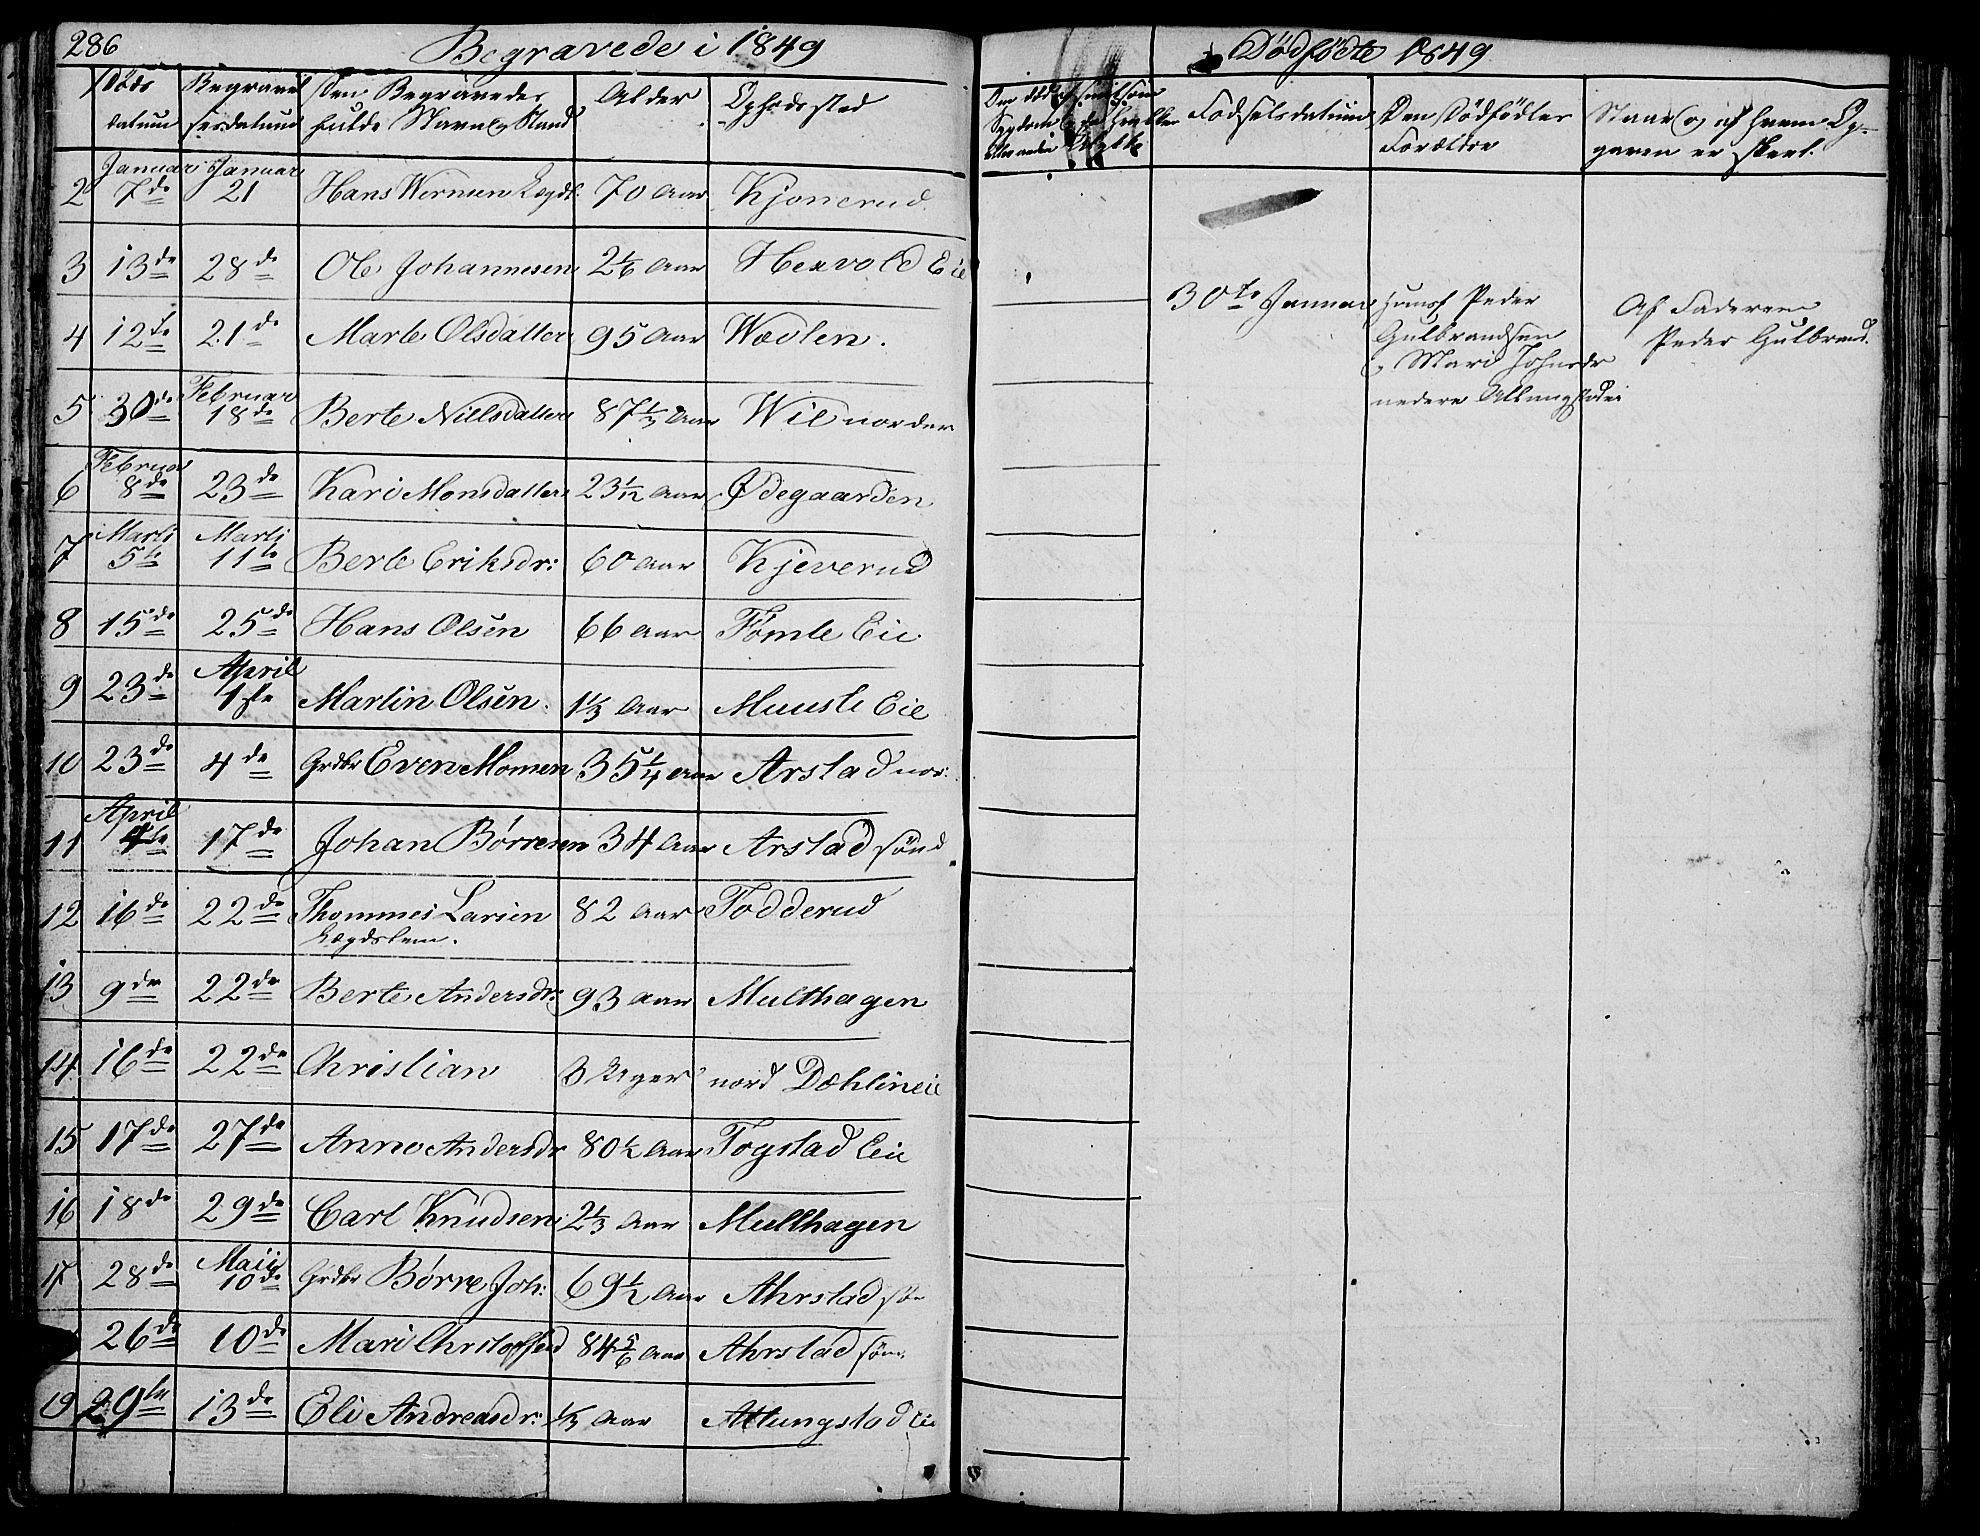 286 Begravede i 1849
Døds datum
Begravelsesdatum
Den Begravedes fulde Navn og Stand
Alder
Opholdssted
2 Januar 7de Januar 21 Hans Wernsen Lægdl. 70 Aar Kjonerud
3 13de 28de Ole Johannesen 2 1/6 Aar Hexvold Eie
4 12te 21de Marte Olsdatter 95 Aar Wedlen.
5 30de Februar 18de Berte Nillsdatter 87 1/3 Aar Wil norder
6 Februar 8de 23de Kari Monsdatter 23 1/12 Aar Ødegaarden
7 Marti 5te Marti 11te Berte Eriksdr: 60 Aar Kjeverud
8 15de 25de Hans Olsen 66 Aar Fömle Eie
9 23de April 1ste Martin Olsen. 1 1/3 Aar Muuste Eie
10 23de 4de Grdbr Even Monsen 35 1/4 Aar Arstad nor:
11 April 4te 17de Johan Børresen 34 Aar Arstad sönd.
12 16de 22de Thommes Larsen 82 Aar Fodderud
Lægdslem.
13 9de 22de Berte Andersdr: 93 Aar Multhagen
14 16de 22de Christian 3 Uger nord Dæhlin eie
15 17de 27de Anne Andersdr 80 1/2 Aar Fogstad Eie
16 18de 29de Carl Knudsen 2 1/3 Aar Multhagen
17 28de Maii 10de Grdbr Børre Joh: 69 1/2 Aar Ahrstad
26de 10de Mari Christoffersd 84 5/6 Aar Ahrstad sön.
19 29de 13de Eli Andreasdr: 1/3 Aar Allungstad Eie
Dødfødte 1849
Fødselsdatum
Den Dødfødtes Forældre
Naar og af hvem Opgaven er skeet.
30te Januar
Huusf Peder
Gulbrandsen
og Mari Johnsdr
nedere Allungstadei
Af Faderen
Peder Gulbrand.